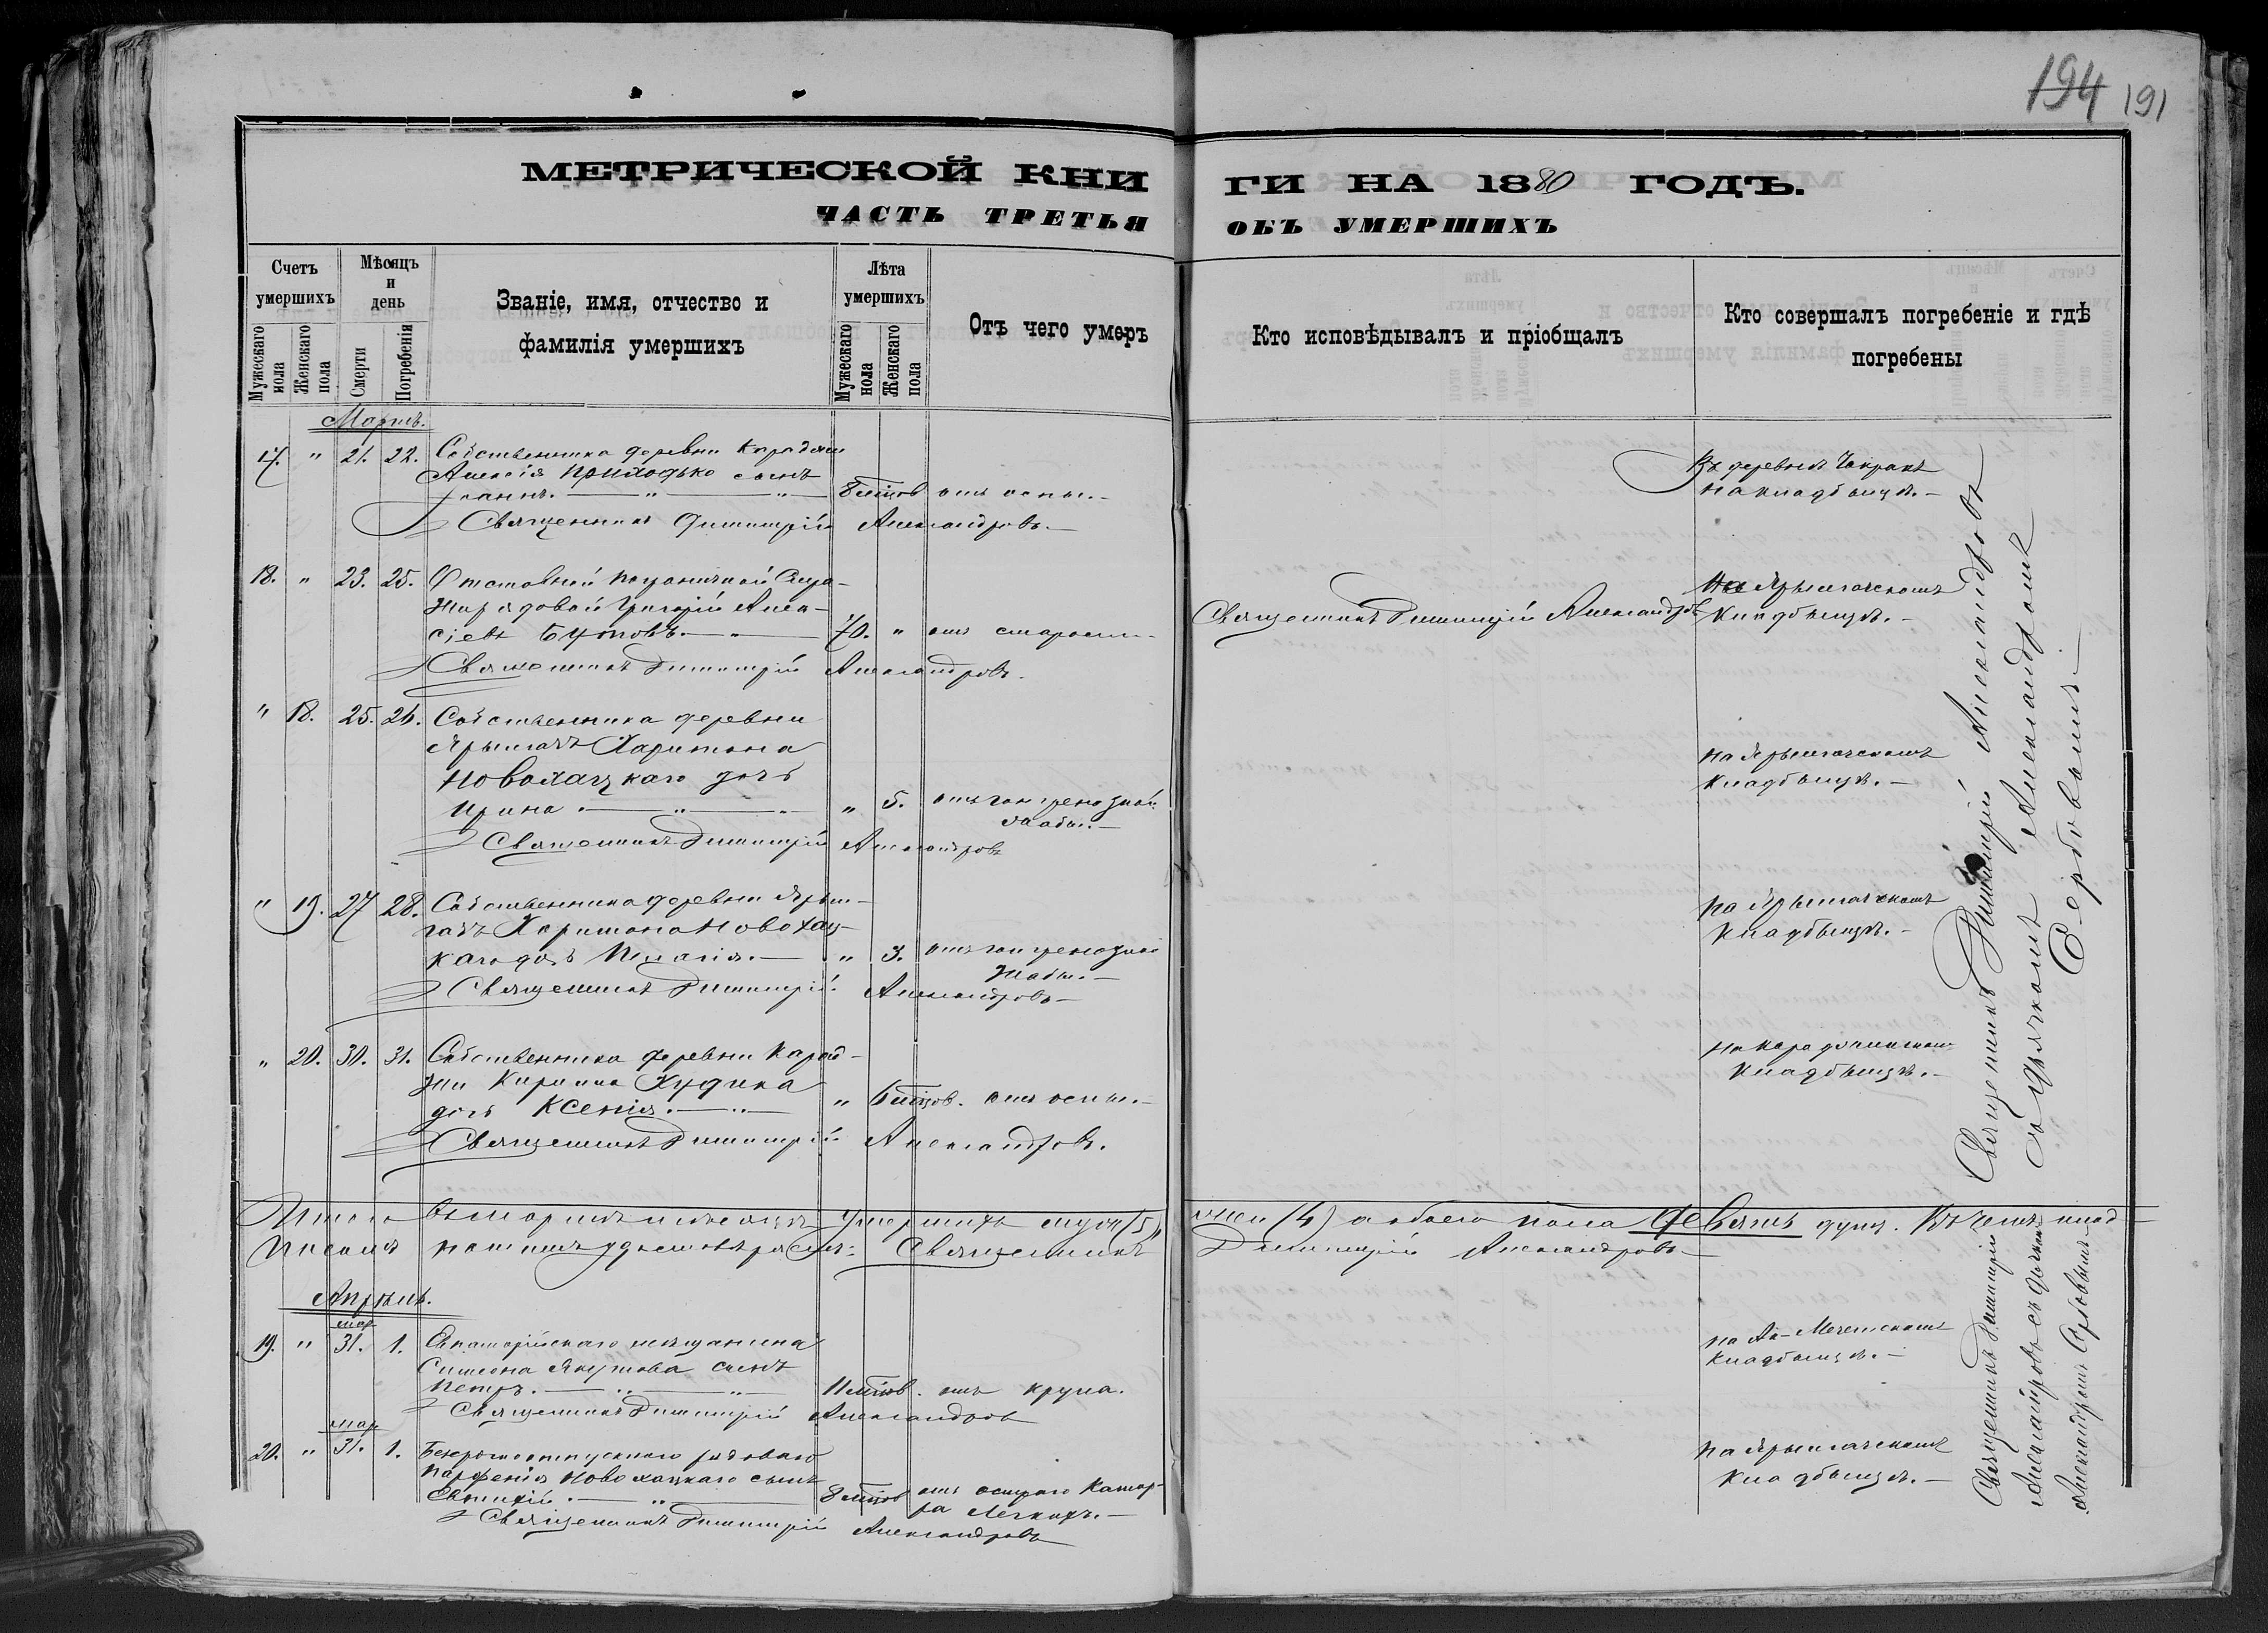 194 191
МЕТРИЧЕСКОЙ КНИ ГИ НА 1880 ГОДЪ.
ЧАСТЬ ТРЕТЬЯ ОБЪ УМЕРШИХЪ
Счетъ умершихъ
Мужескаго пола
Женскаго пола
Мѣсяцъ и день
Смерти
Погребенія
Званіе, имя, отчество и фамилія умершихъ
Лѣта умершихъ
Мужескаго пола
Женскаго пола
Отъ чего умеръ
Кто исповѣдывалъ и пріобщалъ
Кто совершалъ погребеніе и гдѣ погребены
Мартъ.
17. " 21. 22. Собственника деревни Караджи
Алексія Приходько сынъ
Іоаннъ. 8 мѣсяцов отъ оспы.
Въ деревнѣ Чокракъ
на кладбищѣ.
Священникъ Димитрій Александровъ.
18. " 23. 25. Отставной пограничной Стра-
жи рядовой Григорій Алек-
сіевъ Бутовъ. 70. " отъ старости.
Священникъ Димитрій Александровъ
На Ярылгачскомъ
кладбищѣ.
Священникъ Димитрій Александровъ.
" 18. 25. 26. Собственника деревни
Ярылгачъ Харитона
Новохацкаго дочь
Ирина. " 5. отъ гангренозной
жабы.
на Ярылгачскомъ
кладбищѣ.
Священникъ Димитрій Александровъ
" 19. 27 28. Собственника деревни Ярыл-
гачъ Харитона Новохац-
каго дочь Пелагія. " 3. отъ гангренозной
жабы.
На Ярылгачскомъ
кладбищѣ.
Священникъ Димитрій Александровъ
" 20. 30. 31. Собственника деревни Карад-
жи Кирилла Худика
дочь Ксенія. " 6 мѣсяцов. отъ оспы.
на Караджинскомъ
кладбищѣ.
Священникъ Димитрій Александровъ.
Священникъ Димитрій Александровъ
съ Дьячкомъ Александромъ
Сербовымъ.
Итого въ мартѣ мѣсяцѣ умершихъ муж (5) жен (4) а обоего пола девять душъ. Въ чемъ под-
писомъ нашимъ удостовѣряемъ: Священникъ Димитрій Александровъ
Апрѣль.
мар
19. " 31. 1. Евпаторійскаго мѣщанина
Симеона Якутова сынъ
Петръ. 11 мѣсяцов. отъ крупа.
на Ак-Мечетскомъ
кладбищѣ.
Священникъ Димитрій Александровъ
мар
20. " 31. 1. Безсрочноотпускнаго рядоваго
Парфенія Новохацкаго сынъ
Евтихій. 8 мѣсяцов отъ остраго катар-
ра легкихъ.
на Ярылгачскомъ
кладбищѣ.
Священникъ Димитрій Александровъ
Священникъ Димитрій
Александровъ съ дьячкомъ
Александромъ Сербовымъ.